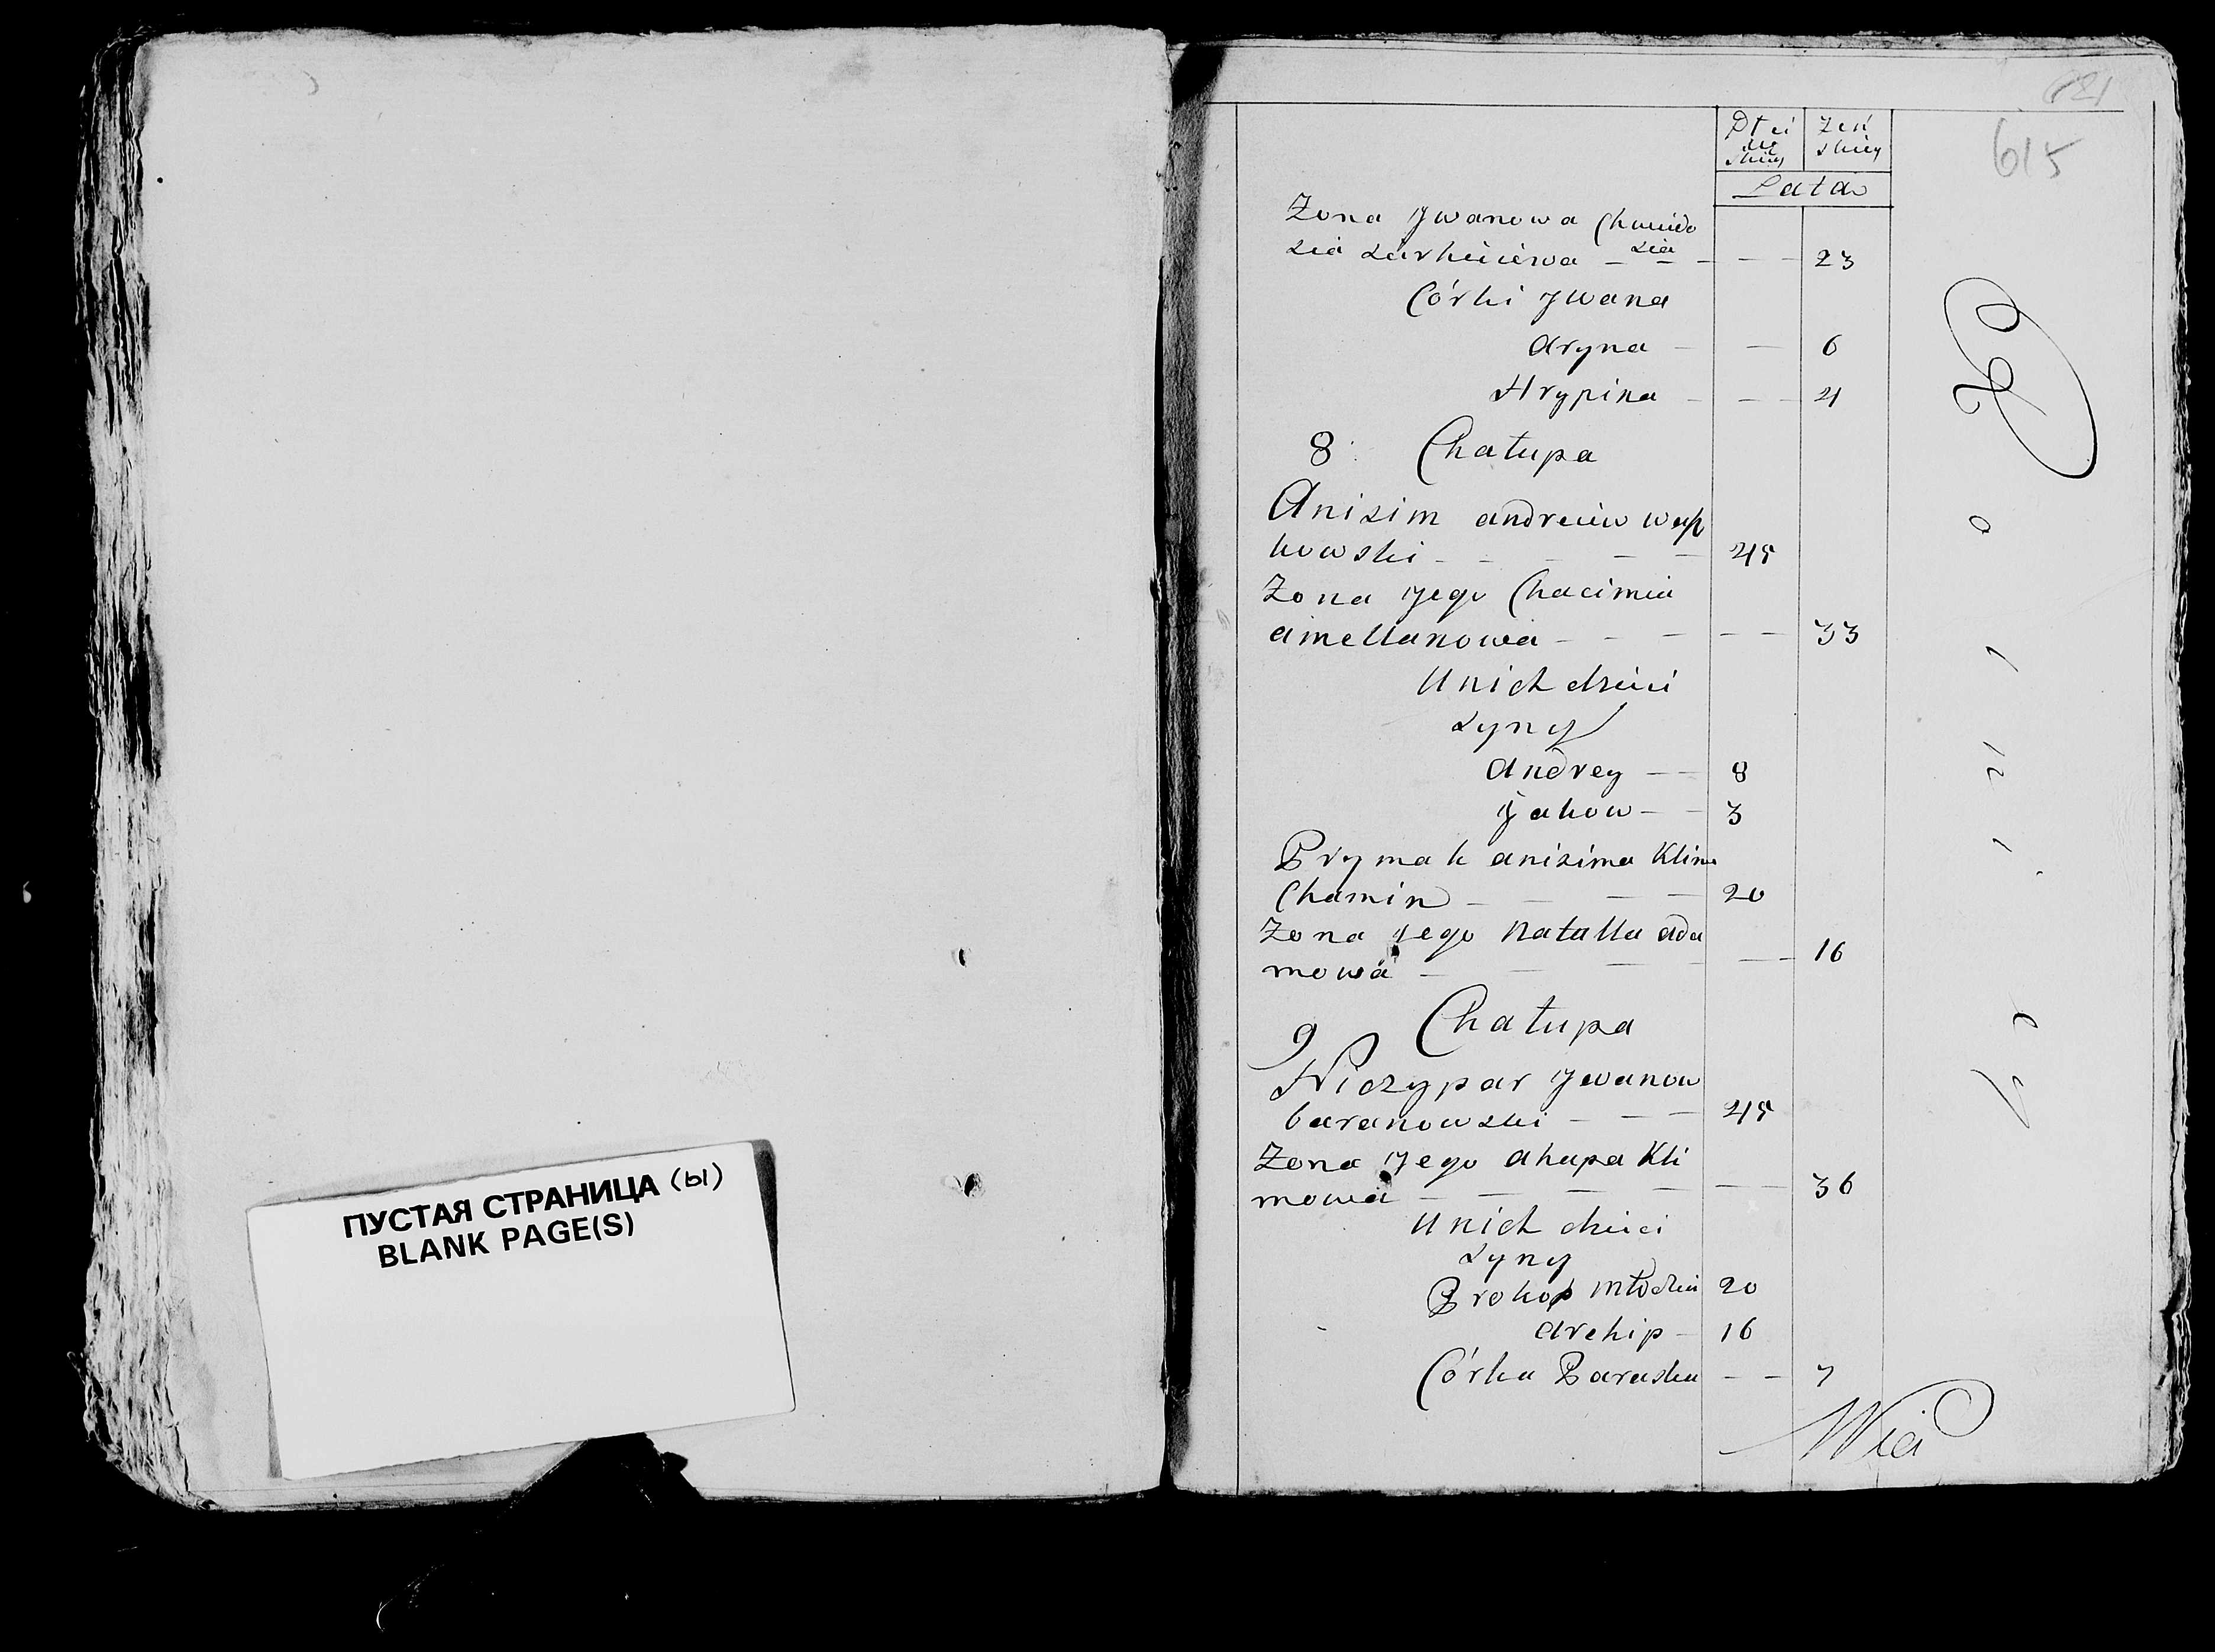 ПУСТАЯ СТРАНИЦА (ы)
BLANK PAGE(S)
621
615
Płci
Żeń
skiey
Lata
Żona Jwanowa Chwiedo
sia
23
Córki Jwana
Aryna — — 6
Hrypina — — 4
8 Chałupa
Anisim andreiew
kowski — — 45
Żona Jego Chacimia
amellanowa — — 33
U nich dzieci
Syny
Andrey — — 8
Jakow — — 3
Prymak anisima Klim
Chamin — — 20
Żona Jego Natalla ada
mowa — — 16
9 Chałupa
Niczypar Jwanow
baranowski — — 45
Żona Jego ahapa Kli
mowa — — 36
U nich dzieci
Syny
Prokop 20
Archip — 16
Córka Paraska — — 7